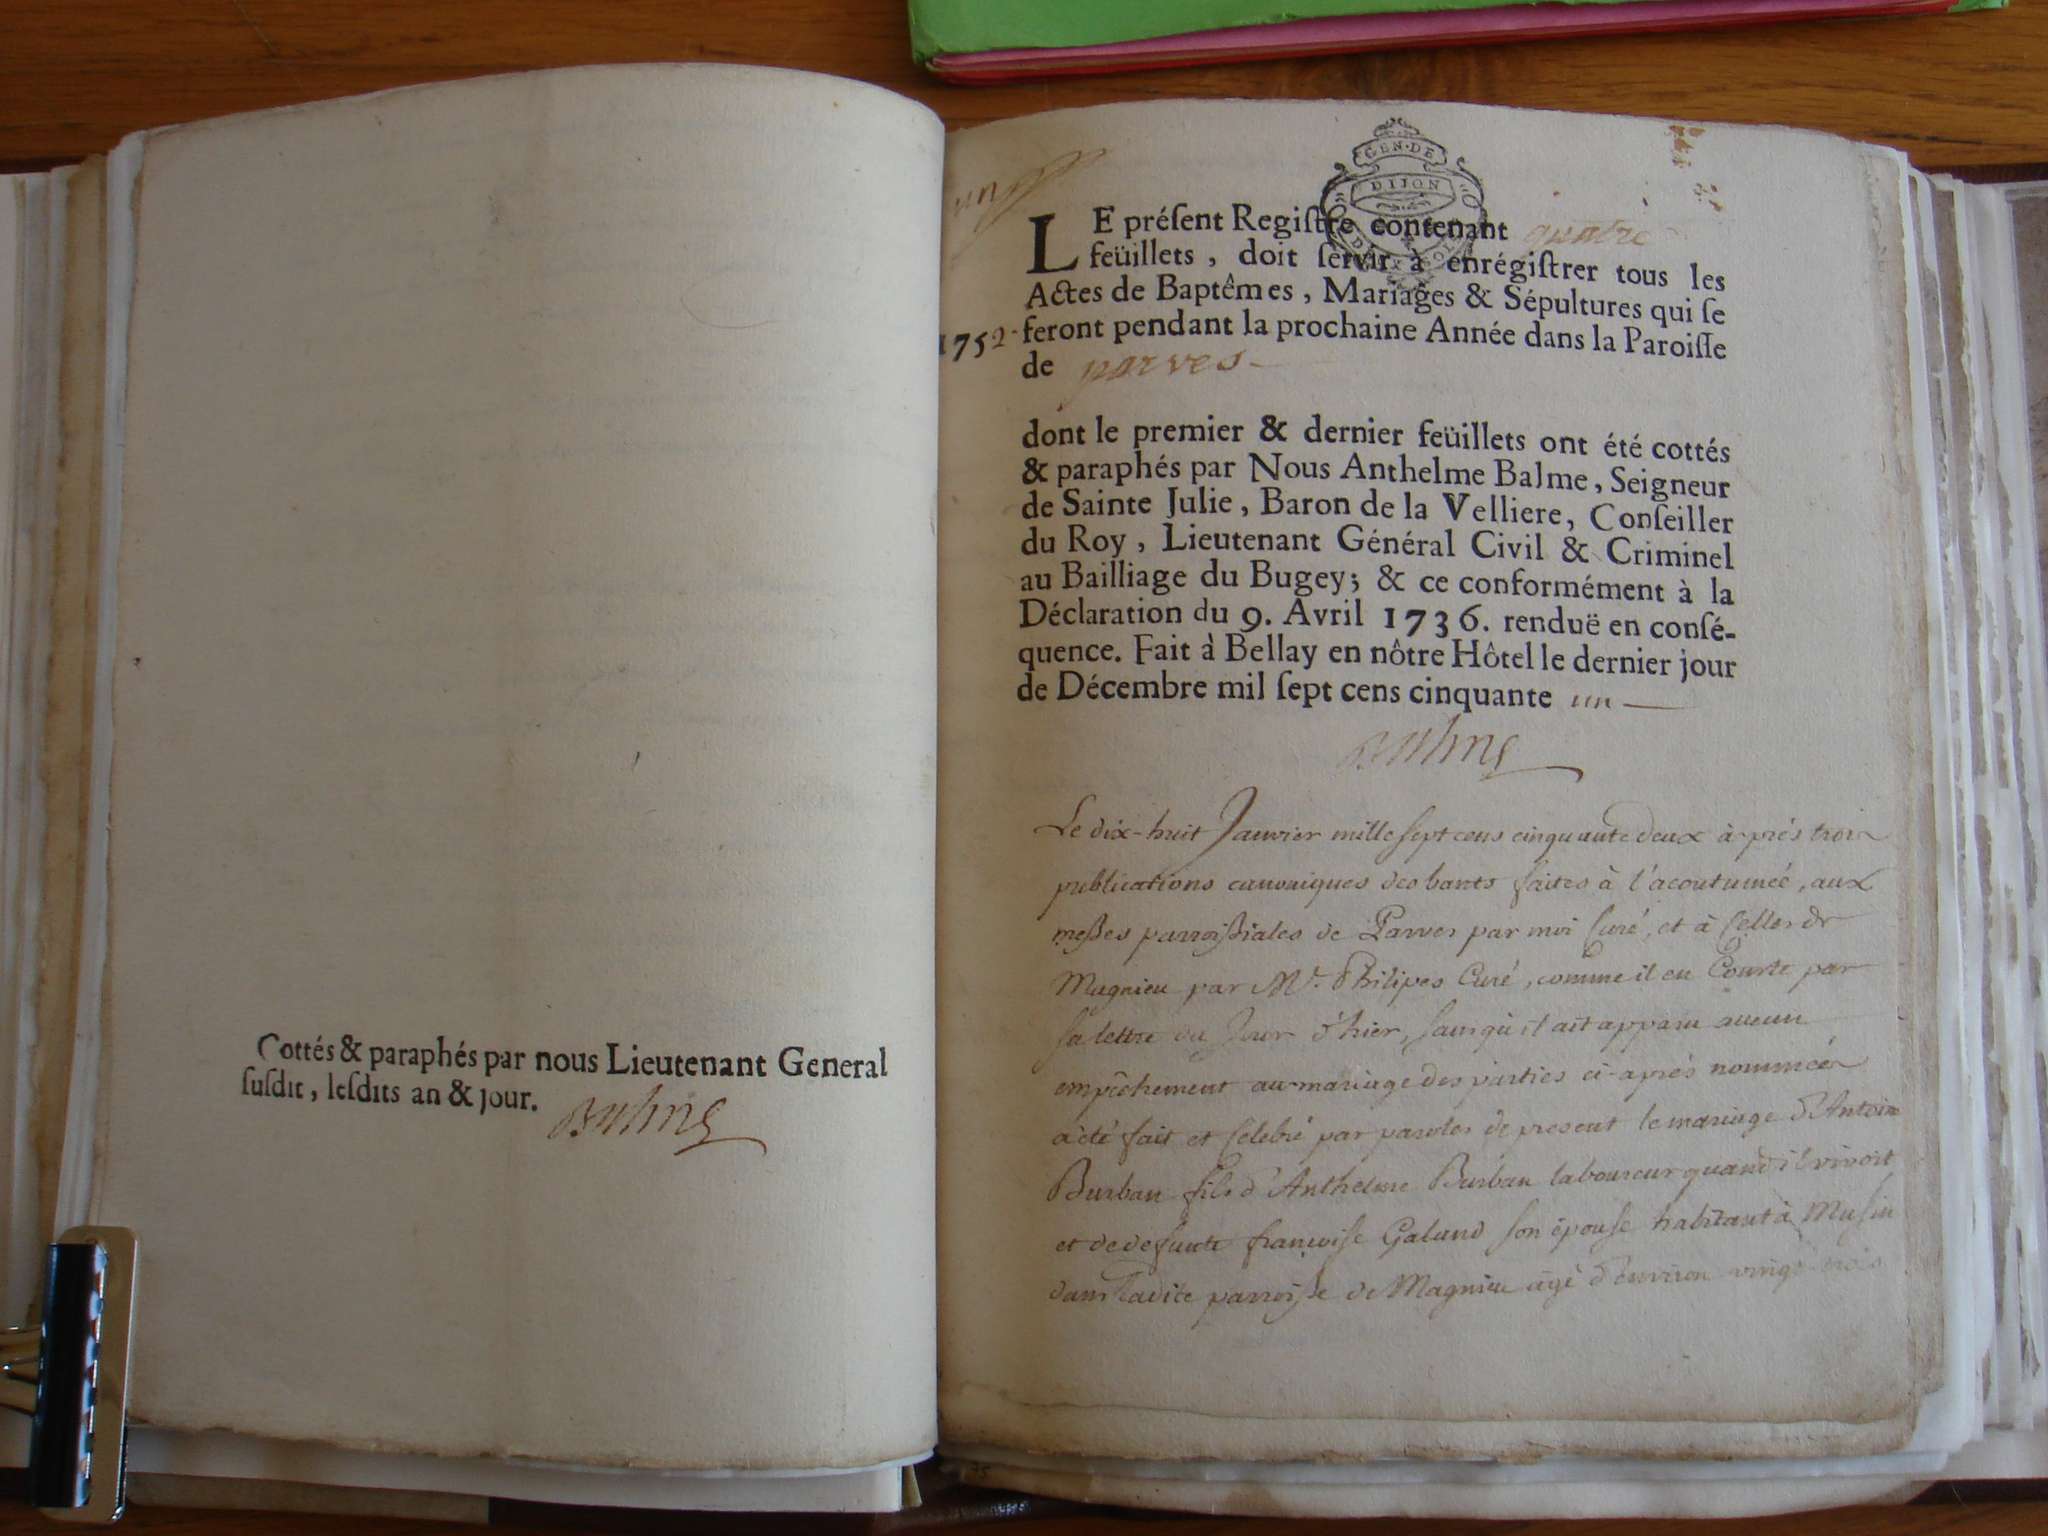 Cottés & paraphés par nous Lieutenant General
ſuſdit, leſdits an & jour.
Balme
un
GEN. DE
DIJON
LE préſent Regiſtre contenant quatre
feüillets, doit ſervir à enrégiſtrer tous les
Actes de Baptêmes, Mariages & Sépultures qui ſe
1752. feront pendant la prochaine Année dans la Paroiſſe
de parves
dont le premier & dernier feüillets ont été cottés
& paraphés par Nous Anthelme Balme, Seigneur
de Sainte Julie, Baron de la Velliere, Conſeiller
du Roy, Lieutenant Général Civil & Criminel
au Bailliage du Bugey; & ce conformément à la
Déclaration du 9. Avril 1736. renduë en conſé-
quence. Fait à Bellay en nôtre Hôtel le dernier jour
de Décembre mil ſept cens cinquante un
Balme
Le dix-huit Janvier mille ſept cens cinquante deux à prés trois
publications canoniques des bants faites à l'acoutumée, aux
meſſes parroiſſiales de Parves par moi Curé, et à Celles de
Magnieu par Mr. Philipes Curé, comme il en Conste par
ſa lettre du Jour d'hier, ſans qu'il ait apparu aucun
empêchement au mariage des parties ci-aprés nommées
a été fait et Celebré par paroles de present le mariage d'Antoine
Burban fils d'Anthelme Burban laboureur quand il vivoit
et de defunte françoiſe Galand ſon épouſe habitant à Muſin
dans ladite parroiſſe de Magnieu agé d'environ vingt trois